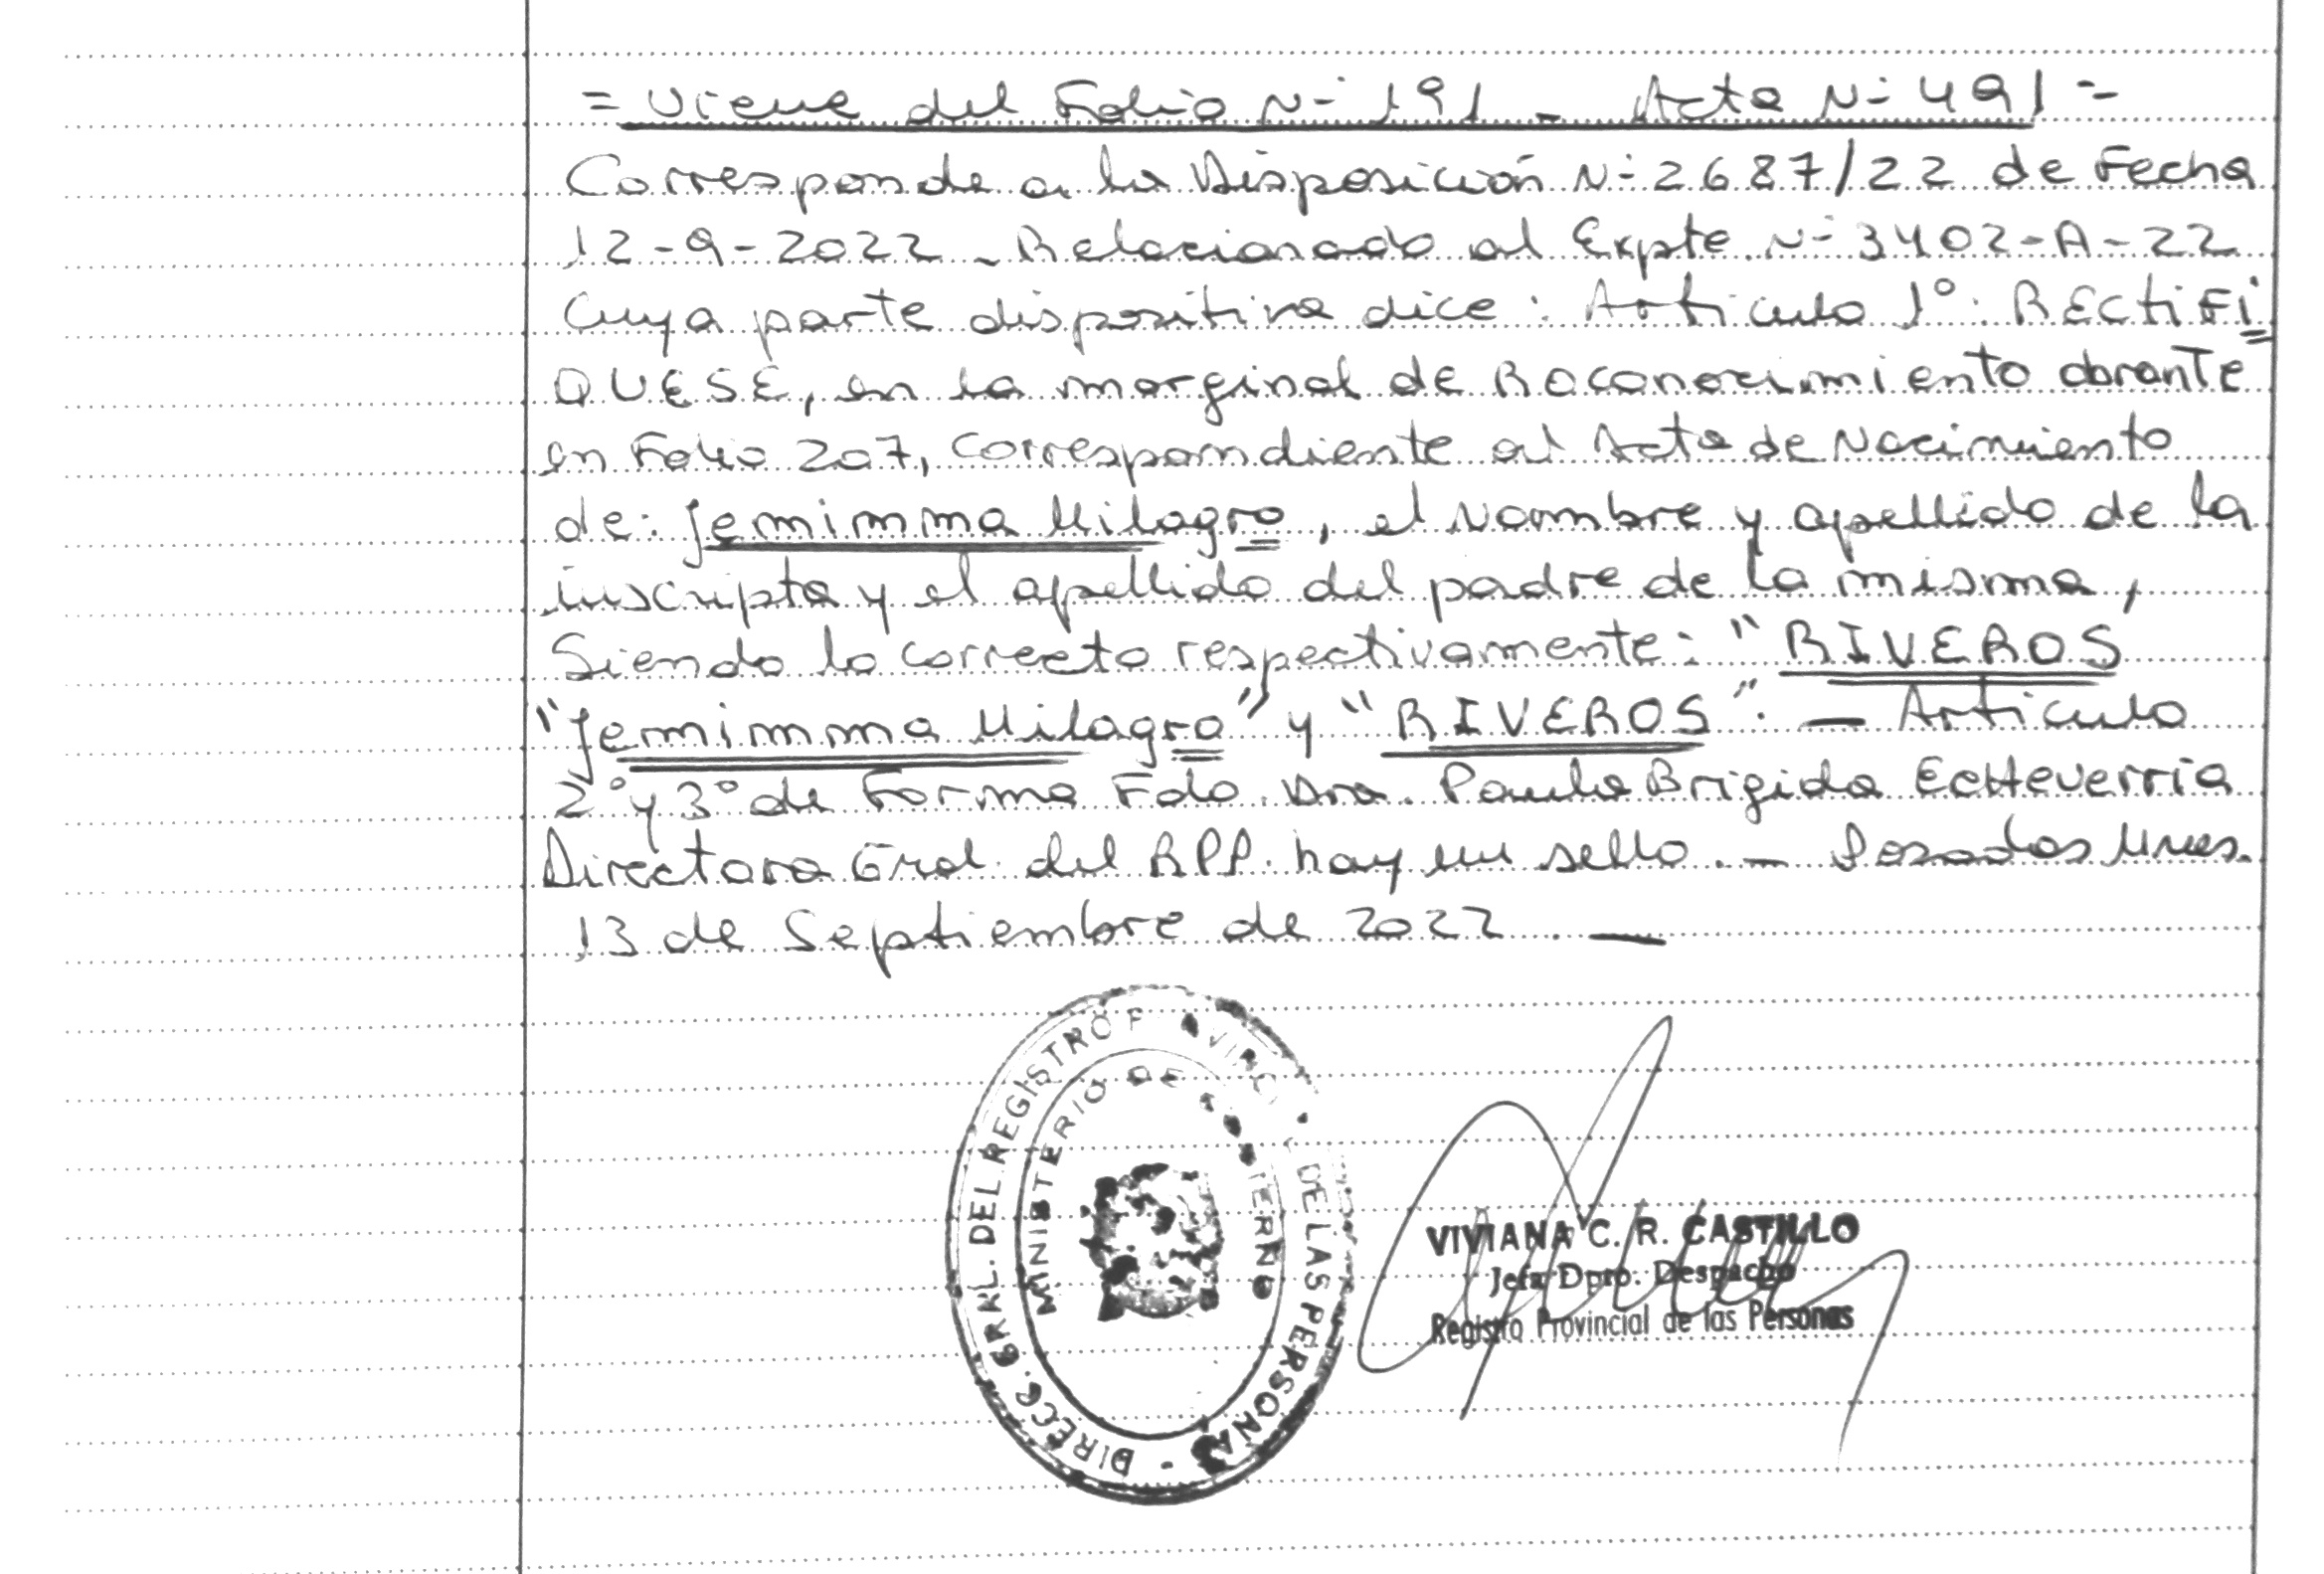 = Viene del Folio N- 191 - Acta N- 491 =
Corresponde a la Disposición N- 2687/22 de Fecha
12-9-2022 - Relacionado al Expte. N- 3402-A-22
Cuya parte dispositiva dice: Articulo 1°: RECtiFi
QUESE, en la marginal de Reconocimiento obrante
en Folio 207, Correspondiente al Acta de Nacimiento
de: Jemimma Milagro, el Nombre y apellido de la
inscripta y el apellido del padre de la misma,
Siendo lo correcto respectivamente: "RIVEROS
"Jemimma Milagro" y "RIVEROS". — Articulo
2° y 3° de Forma Fdo. Dra. Paula Brigida Echeverria
Directora Gral. del RPP. hay un sello. — Posadas Mnes.
13 de Septiembre de 2022. —
DIRECC. GRAL. DEL REGISTRO P DE LAS PERSONAS -
MINISTERIO DE
VIVIANA C. R. CASTILLO
Jefa Dpto. Despacho
Registro Provincial de las Personas